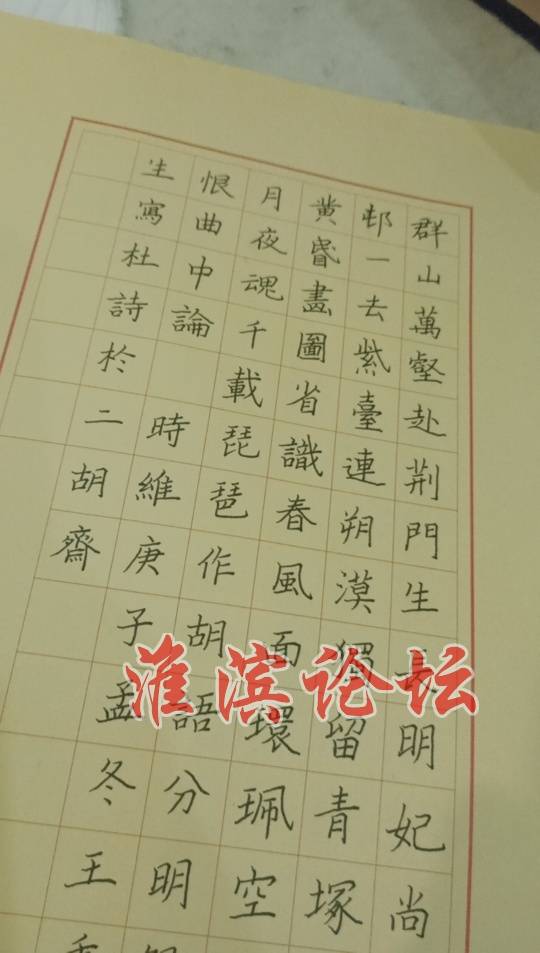 群山萬壑赴荆門生長明妃尚
邨一去紫臺連朔漠獨留青塚
黄昬畫圖省識春風面環珮空
月夜魂千載琵琶作胡語分明
恨曲中論 時維庚子孟冬王
生寫杜詩於二胡齋
淮滨论坛